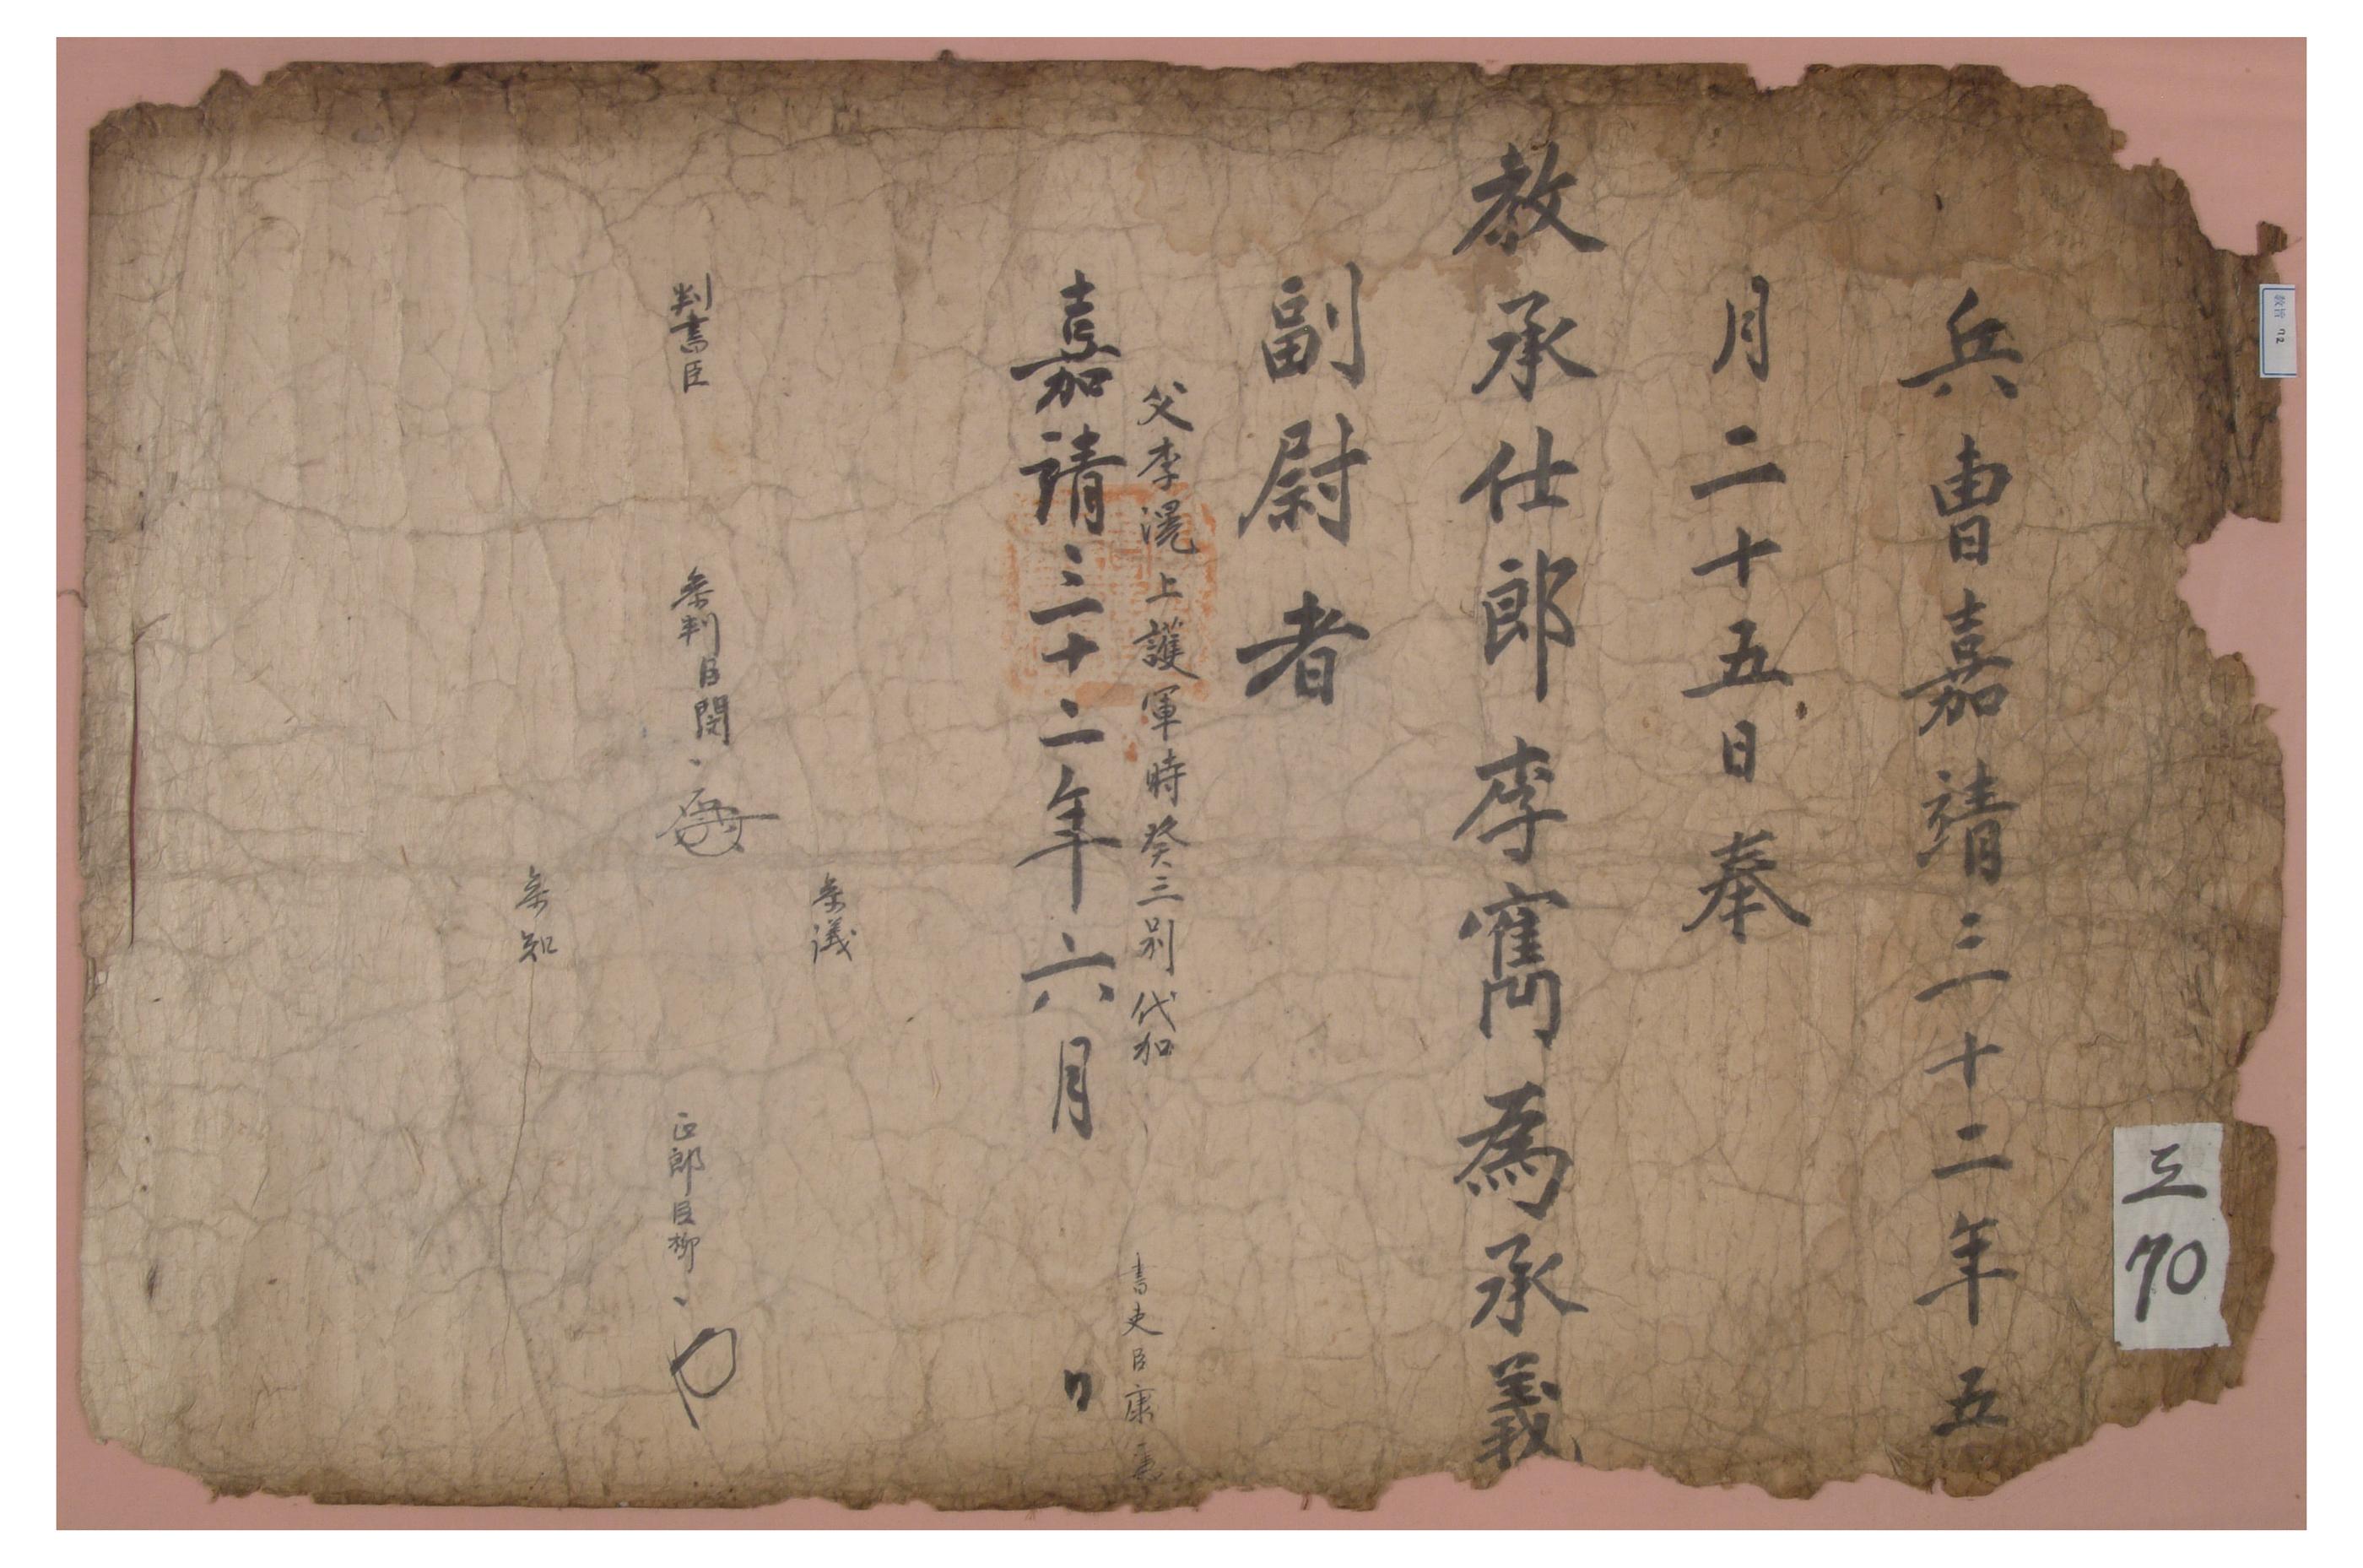 教旨 72
三 70
兵曹嘉靖三十二年五
月二十五日奉
教承仕郎李寯為承義
副尉者
父李滉上護軍時癸三別代加 書吏臣康
嘉靖三十二年六月 日
參議
判書臣 參判臣閔 正郎臣柳
參知